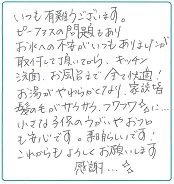 いつも有難うございます。
ピーファスの問題もあり
お水への不安がいつもありましたが
取付して頂いてから、キッチン
洗面、お風呂まで全て快適!
お湯がやわらかくなり、家族皆
髪の毛がサラサラ、フワフワ☆に…
小さな子供のうがいやおフロ
も安心です。素晴らしいです!
これからもよろしくお願いします
感謝…☆